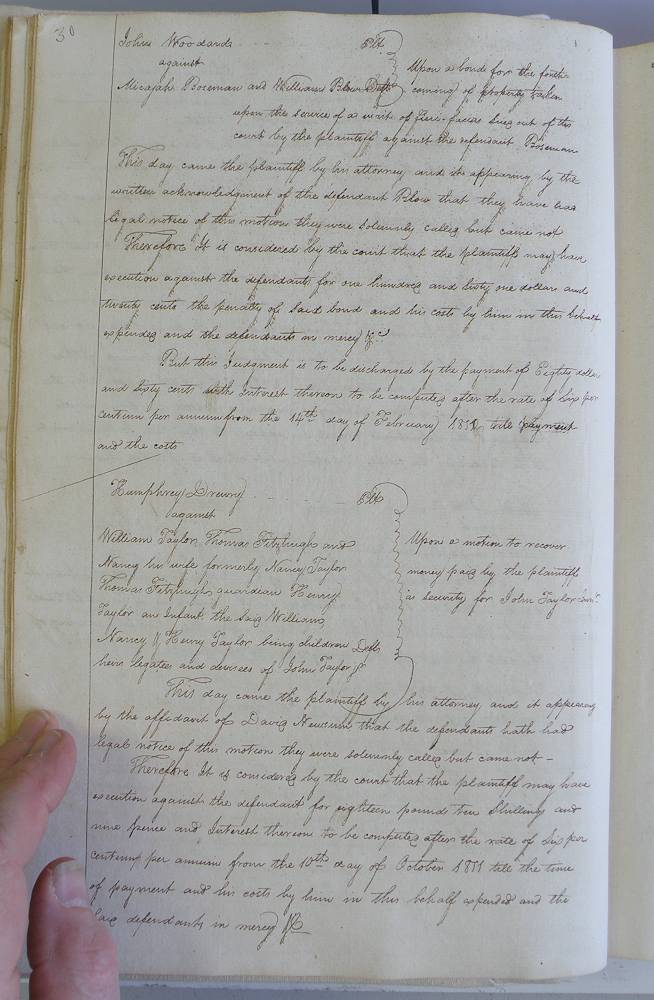 30
John Woodard Plt
against
Micajah Boseman and William Blow Defts
Upon a bond for the forth
coming of property taken
upon the service of a writ of fieri-facias sued out of this
court by the plaintiff against the defendant Boseman
This day came the plaintiff by his attorney and it appearing by the
written acknowledgment of the defendant Blow that they have had
legal notice of this motion they were solemnly called but came not
Therefore It is considered by the court that the plaintiff may have
execution against the defendants for one hundred and sixty one dollars and
twenty cents the penalty of said bond and his costs by him in this behalf
expended and the defendants in mercy &c
But this Judgment is to be discharged by the payment of Eighty dollars
and sixty cents with Interest thereon to be computed after the rate of Six per
centum per annum from the 14th day of February till payment
and the costs
Humphrey Drewry Plt
against
William Taylor Thomas Fitzhugh and
Nancy his wife formerly Nancy Taylor
Thomas Fitzhugh guardian Henry
Taylor an Infant the said William
Nancy & Henry Taylor being children Defts
heirs legatees and devisees of John Taylor
Upon a motion to recover
money paid by the plaintiff
as security for John Taylor
This day came the plaintiff by his attorney and it appearing
by the affidavit of David Newsum that the defendants hath had
legal notice of this motion they were solemnly called but came not -
Therefore It is considered by the court that the plaintiff may have
execution against the defendant for eighteen pounds Shillings and
nine pence and Interest thereon to be computed after the rate of Six per
centum per annum from the 10th day of October 1811 till the time
of payment and his costs by him in this behalf expended and the
said defendants in mercy &c